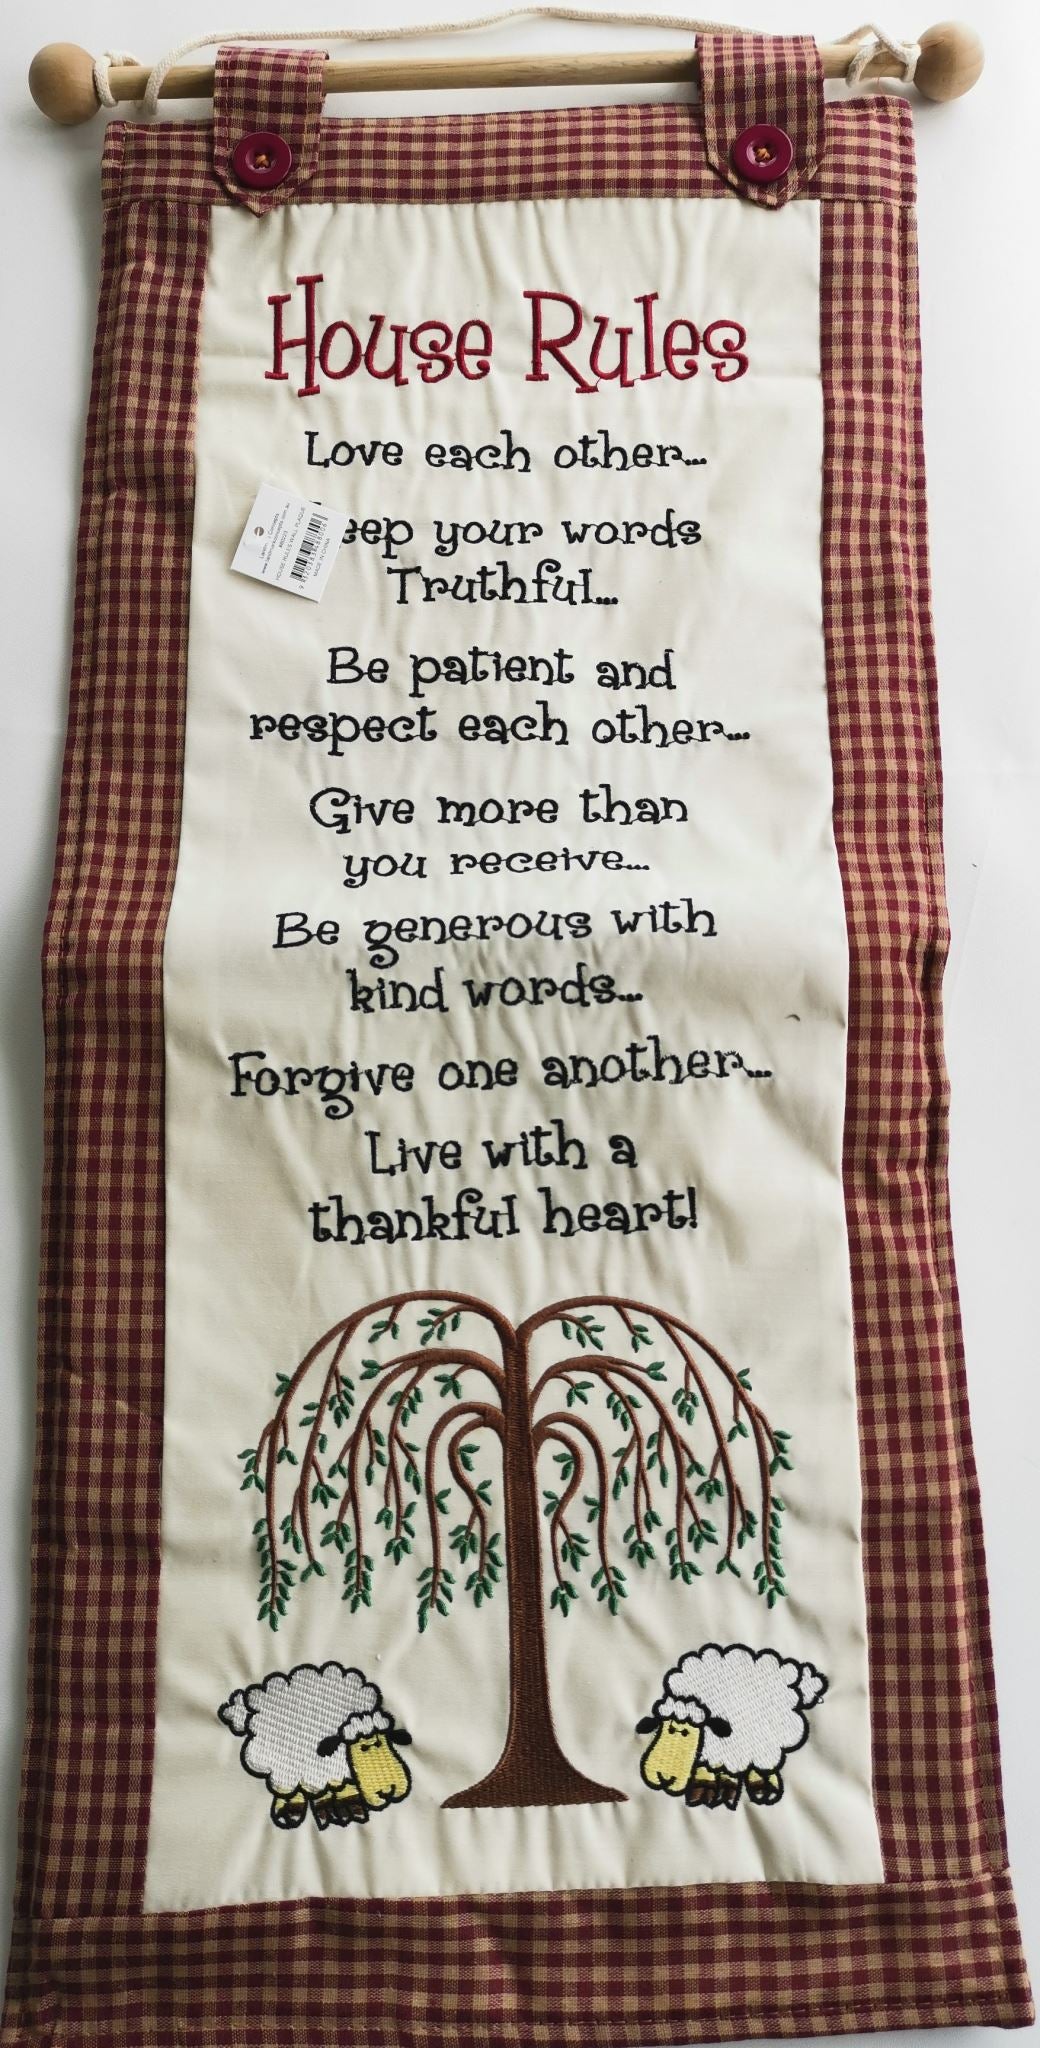 House Rules
Love each other...
eep your words
Truthful...
Be patient and
respect each other...
Give more than
you receive...
Be generous with
kind words...
Forgive one another...
Live with a
thankful heart!
Concepts
HOUSE RULES WALL PLAQUE
MADE IN CHINA